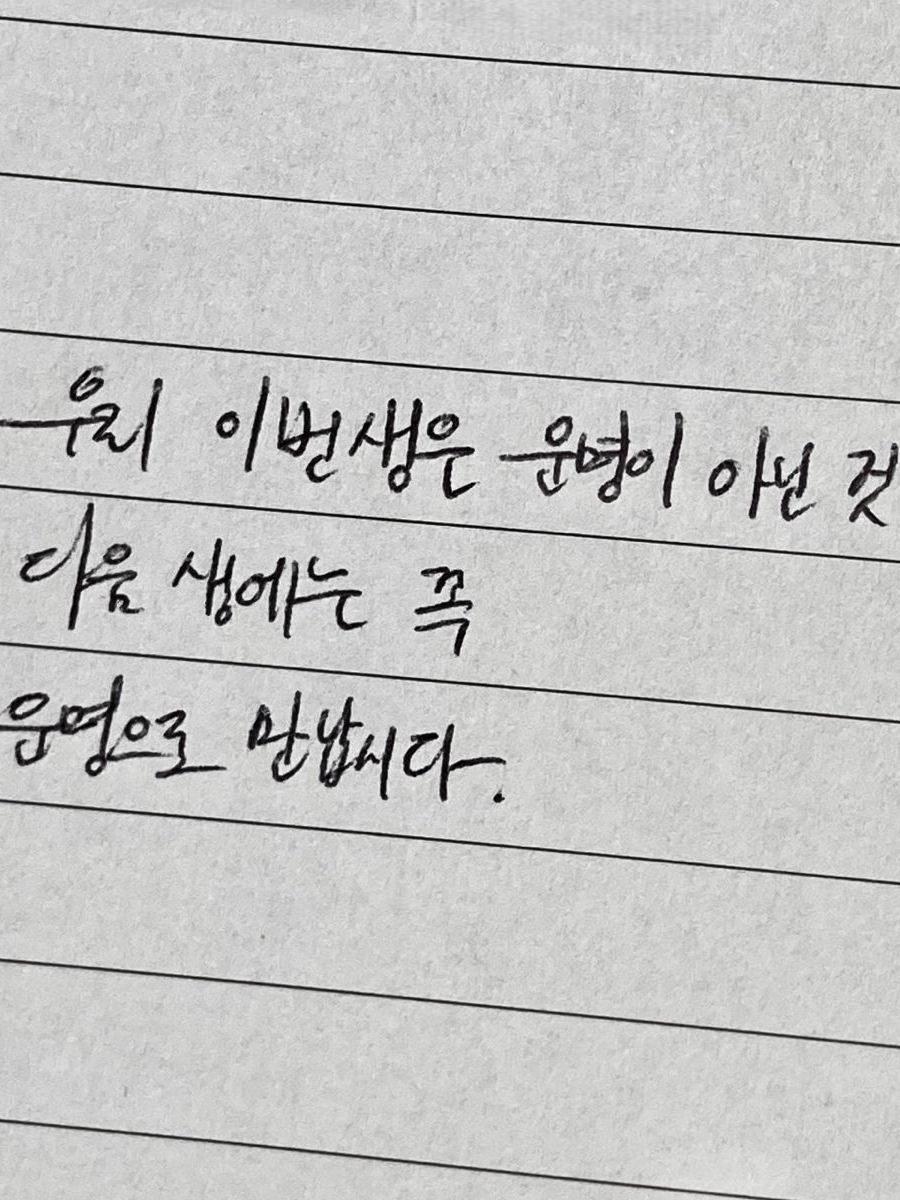 우리 이번생은 운명이 아닌 것
다음 생에는 꼭
운명으로 만납시다.